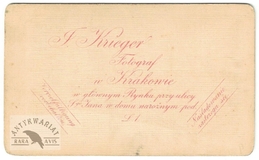 J. Krieger
Fotograf
w Krakowie
w głównym Rynku przy ulicy
S. Jana w domu narożnym pod
L. 1.
ANTYKWARIAT
RARA AVIS